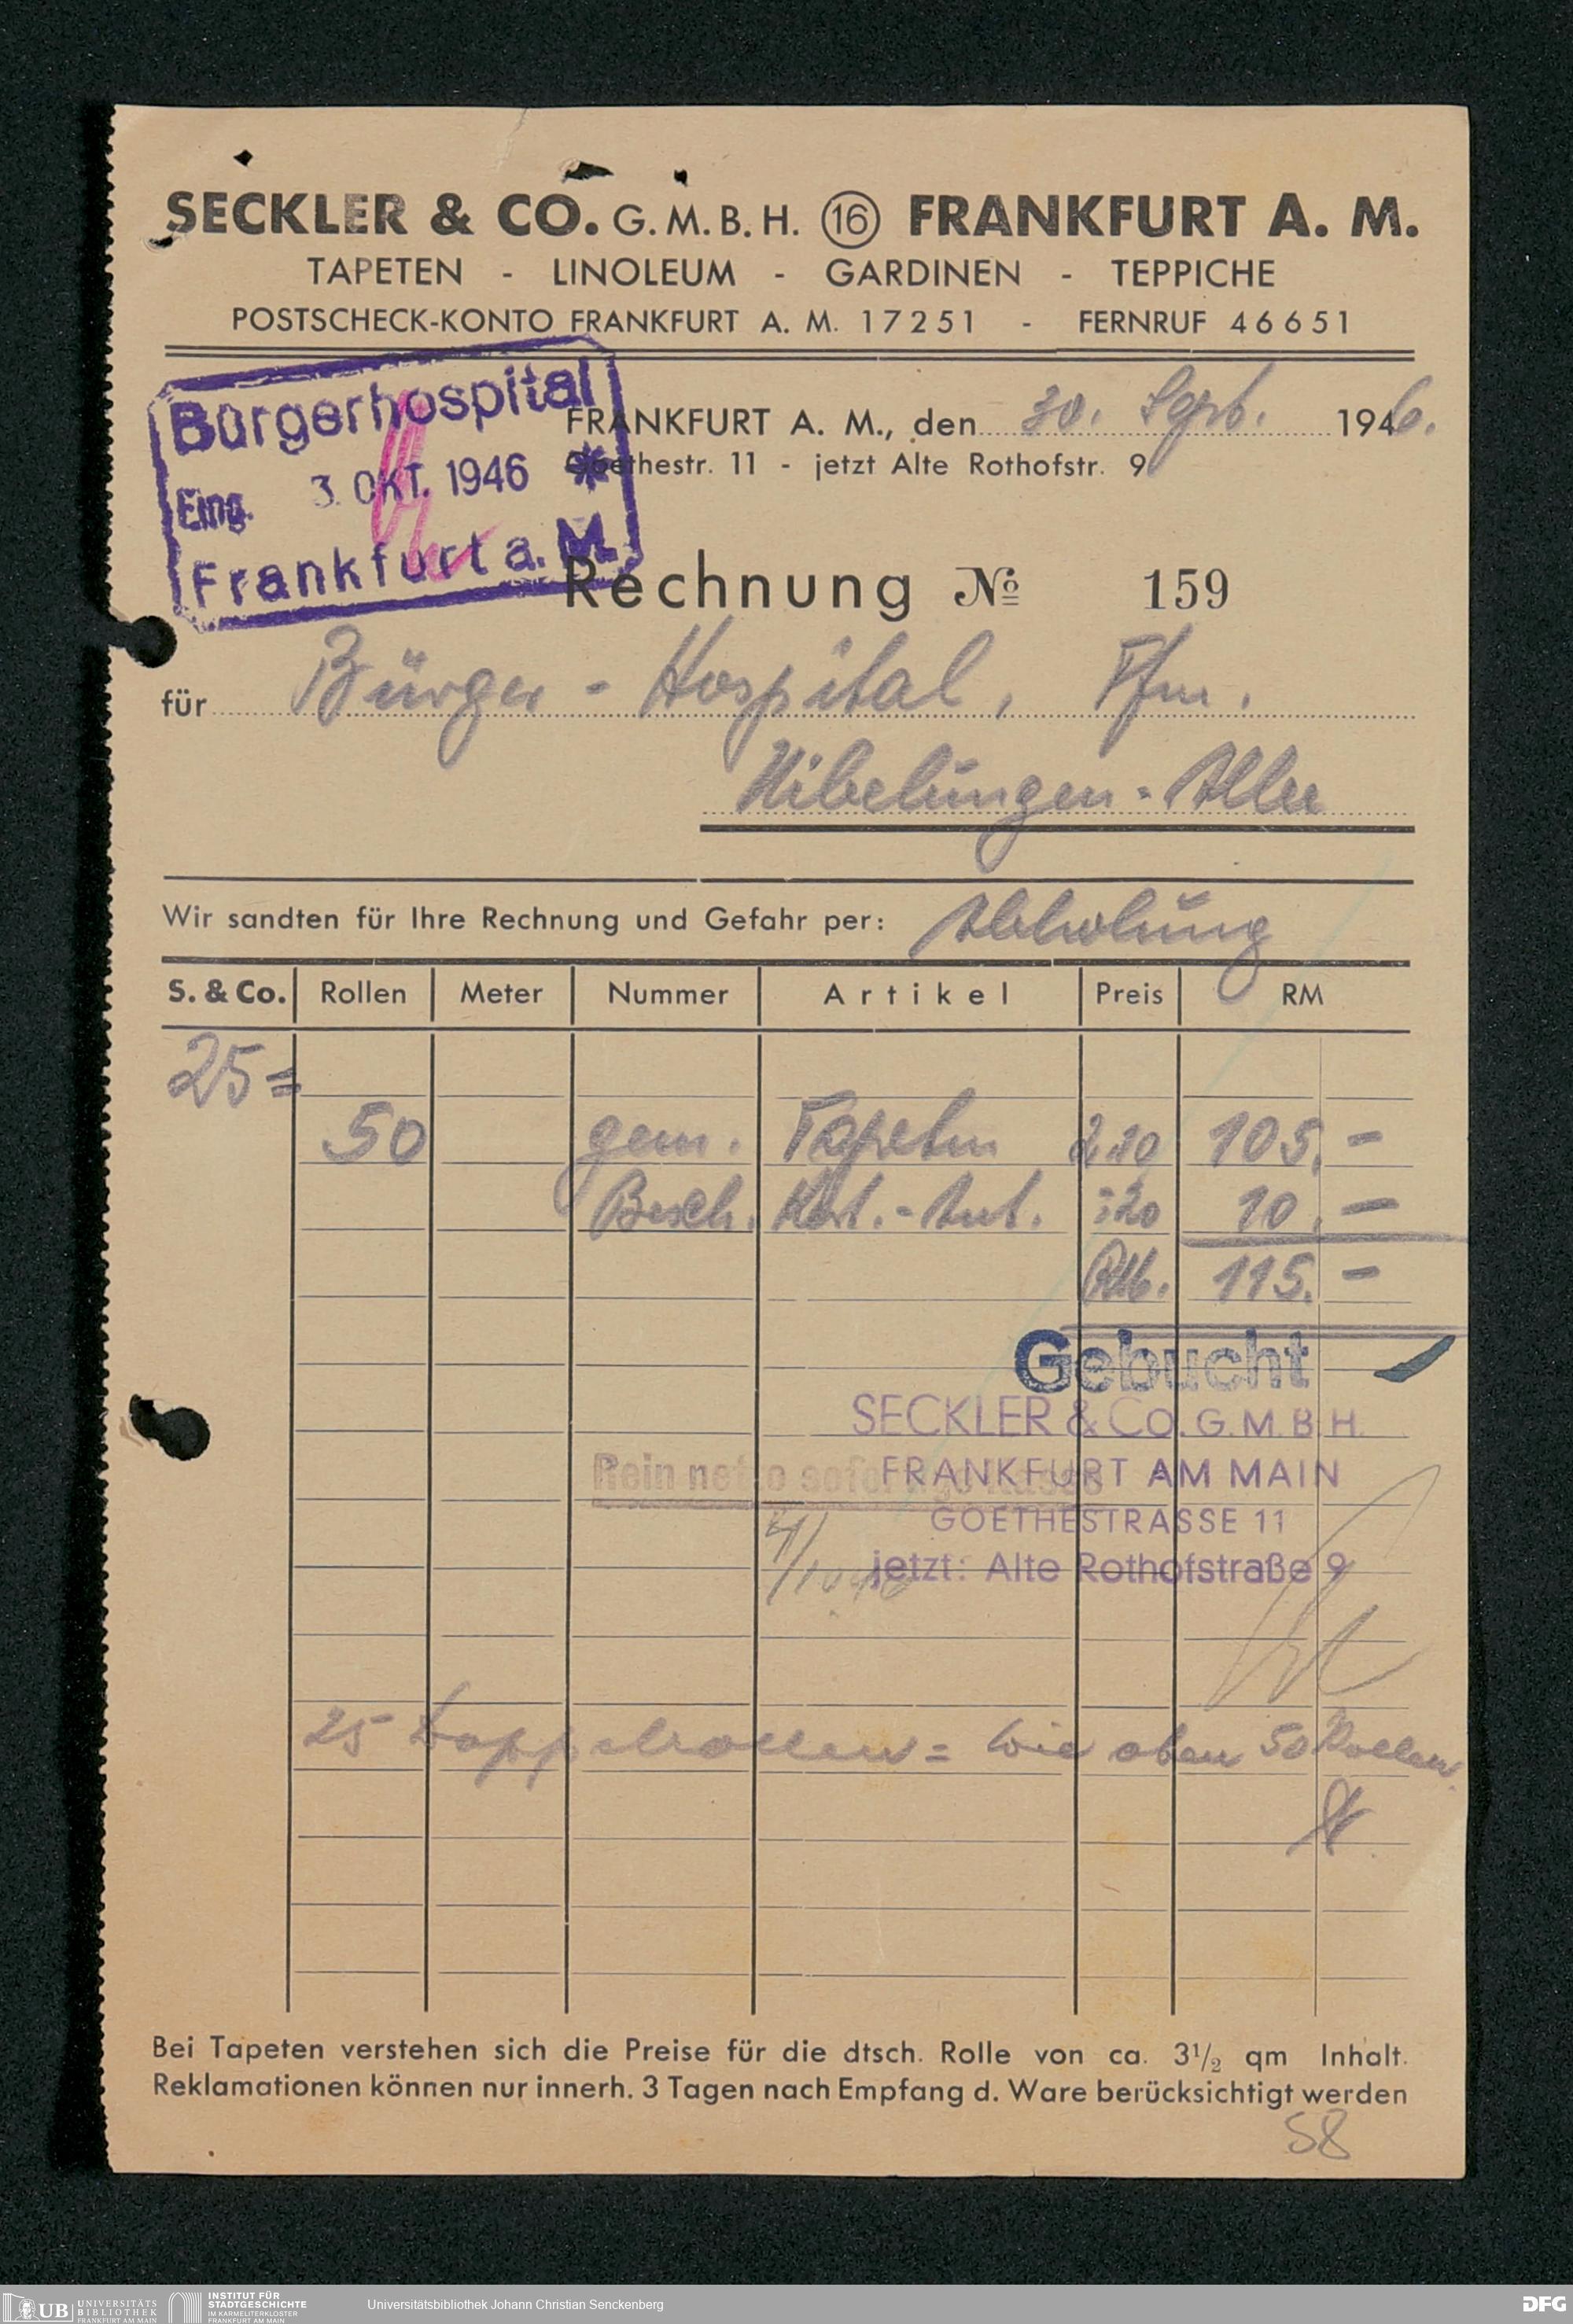 SECKLER & CO. G. M. B. H. 16 FRANKFURT A. M.
TAPETEN - LINOLEUM - GARDINEN - TEPPICHE
POSTSCHECK-KONTO FRANKFURT A. M. 17251 - FERNRUF 46651
Bürgerhospital
Eing. 3. OKT. 1946 *
Frankfurt a. M.
FRANKFURT A. M., den 30. Sept. 1946.
Goethestr. 11 - jetzt Alte Rothofstr. 9
Rechnung № 159
für Bürger-Hospital, Ffm.
Nibelungen-Allee
Wir sandten für Ihre Rechnung und Gefahr per: Abholung
S. & Co. Rollen Meter Nummer Artikel Preis RM
25 =
50 gem. Tapeten 2.10 105.-
Besch. -.20 10.-
115.-
Gebucht
SECKLER & CO. G. M. B. H.
Rein netto sofortige Kasse
FRANKFURT AM MAIN
GOETHESTRASSE 11
jetzt: Alte Rothofstraße 9
25 Doppelrollen = wie oben 50 Rollen.
Bei Tapeten verstehen sich die Preise für die dtsch. Rolle von ca. 3½ qm Inhalt.
Reklamationen können nur innerh. 3 Tagen nach Empfang d. Ware berücksichtigt werden
58
UB UNIVERSITÄTS BIBLIOTHEK FRANKFURT AM MAIN
INSTITUT FÜR STADTGESCHICHTE IM KARMELITERKLOSTER FRANKFURT AM MAIN
Universitätsbibliothek Johann Christian Senckenberg
DFG